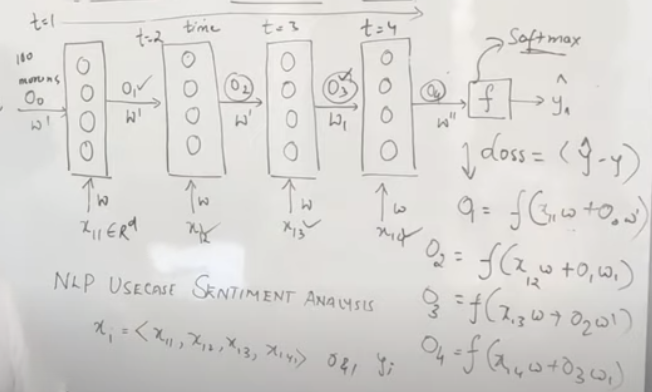 t=1
t=2
time
t=3
t=4
Softmax
100
O₀
w'
O₁ ✓
w'
O₂
w'
O₃ ✓
w₁
O₄
w''
f
ŷ₁
w
w
w
w
x₁₁ ∈ Rᵈ
x₁₂
x₁₃ ✓
x₁₄
loss = (ŷ-y)
= f(x₁₁w+O₀w'
O₂ = f(x₁₂w+O₁w₁)
O₃ = f(x₁₃w+O₂w')
O₄ = f(x₁₄w+O₃w₁)
NLP USECASE SENTIMENT ANALYSIS
xᵢ = <x₁₁, x₁₂, x₁₃, x₁₄,>
yᵢ